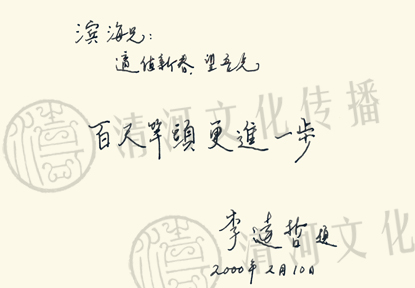 滨海兄：
適值新春，望吾兄
百尺竿頭更進一步
清河文化传播
李遠哲題
清河文化
2000年2月10日